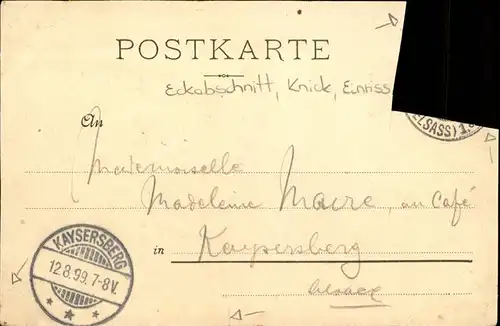 POSTKARTE
Eckabschnitt, Knick, Einriss
An
Mademoiselle
Madeleine Macre, au Café
in Kaysersberg
Alsace
KAYSERSBERG
12.8.99. 7-8V.
ELSASS) 1.